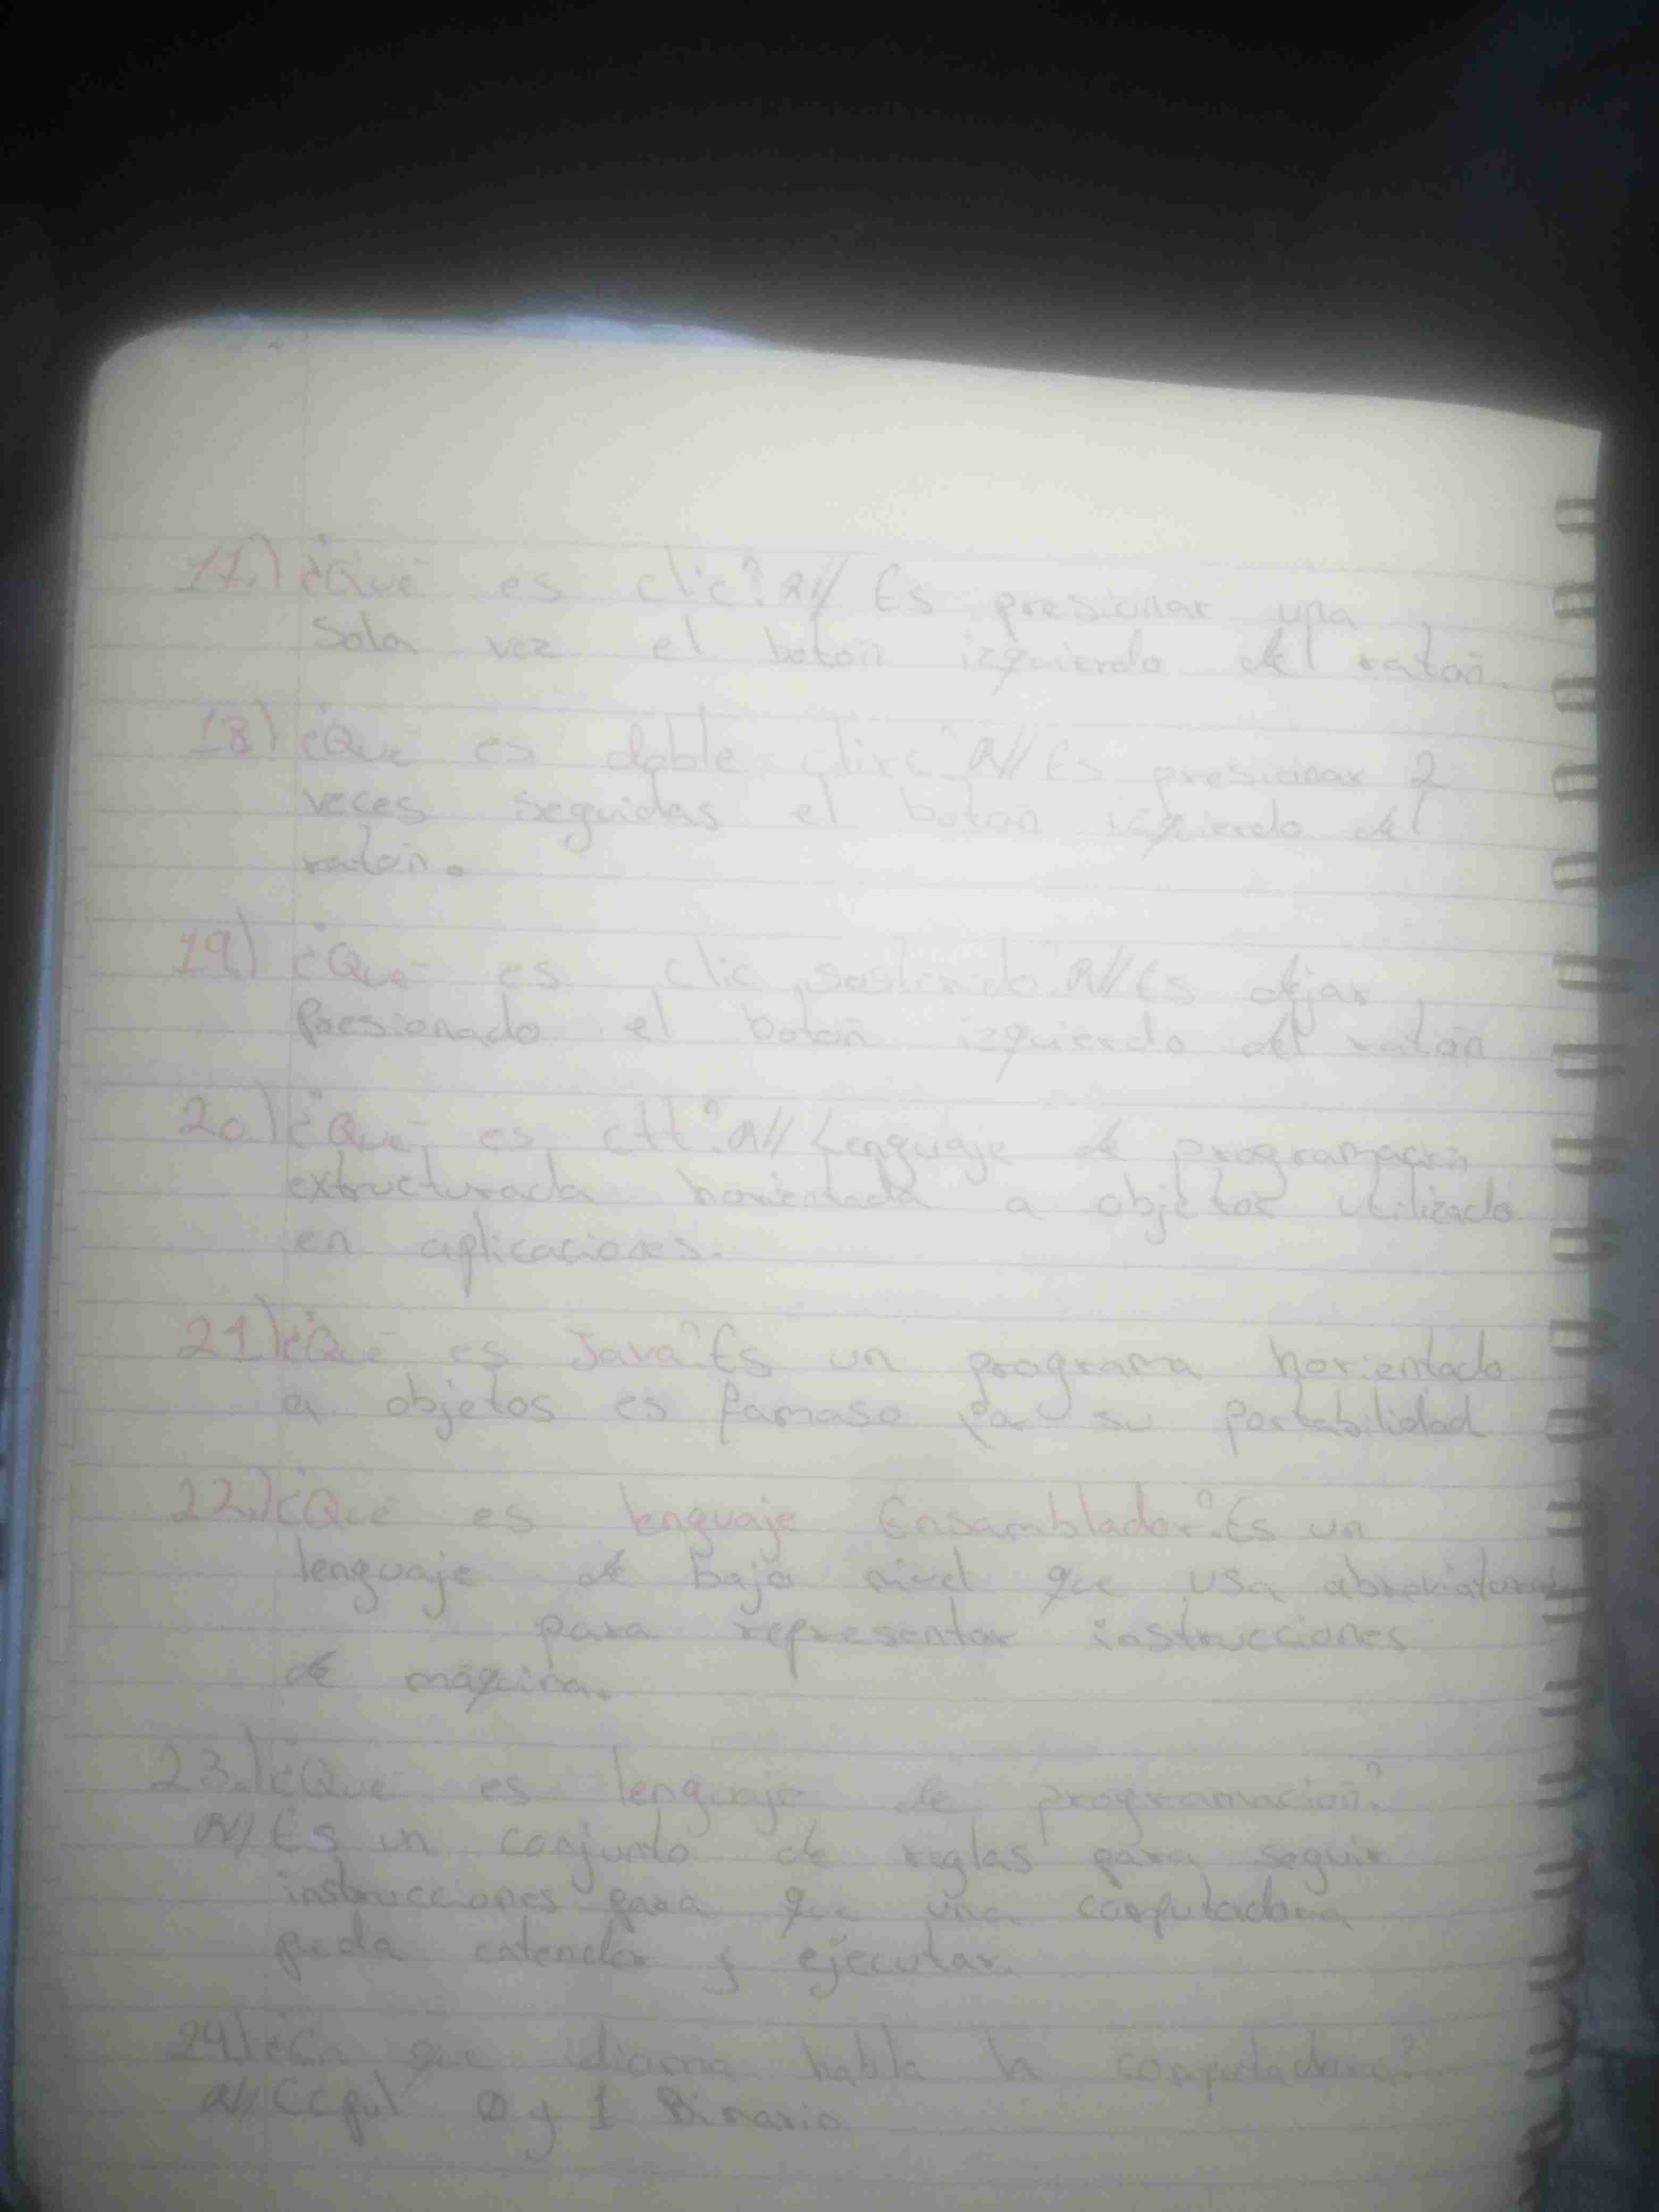 17.) ¿Qué es clic? R// Es presionar una
Sola vez el botón izquierdo del ratón.
18) ¿Qué es doble clirc R// Es presionar 2
veces seguidas el botón izquierdo del
ratón.
19) ¿Qué es clic sostenido R// Es dejar
Presionado el botón izquierdo del ratón
20.) ¿Qué es c++? R// Lenguaje de programación
extructurada horientada a objetos utilizado
en aplicaciones.
21) ¿Qué es Java? Es un programa horientado
a objetos es famoso por su portabilidad
22.) ¿Qué es lenguaje Ensamblador? Es un
lenguaje de bajo nivel que usa abreviaturas
para representar instrucciones
de máquina.
23.) ¿Qué es lenguaje de programación?
R// Es un conjunto de reglas para seguir
instrucciones para que una computadora
pueda entender y ejecutar.
24) ¿En que idioma habla la computadora?
R// (cpu) 0 y 1 Binario